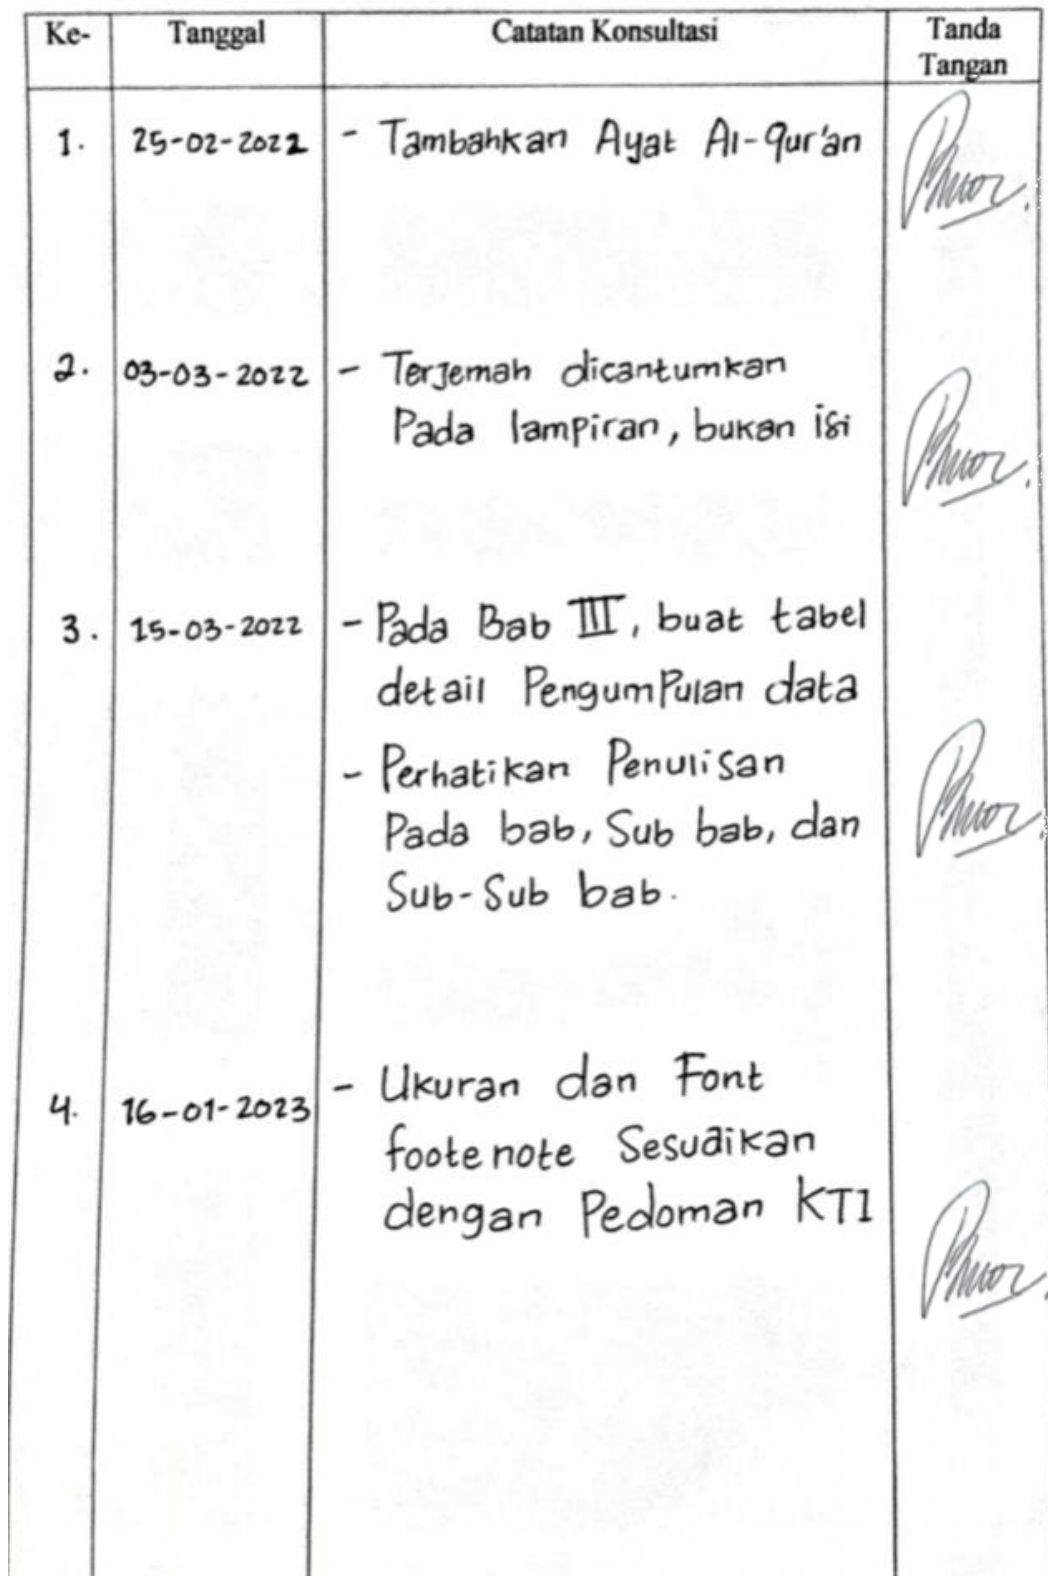 Ke- Tanggal Catatan Konsultasi Tanda
Tangan
1. 25-02-2022 - Tambahkan Ayat Al-Qur'an
2. 03-03-2022 - Terjemah dicantumkan
Pada lampiran, bukan isi
3. 15-03-2022 - Pada Bab III, buat tabel
detail Pengumpulan data
- Perhatikan Penulisan
Pada bab, Sub bab, dan
Sub-Sub bab.
4. 16-01-2023 - Ukuran dan Font
footenote Sesuaikan
dengan Pedoman KTI